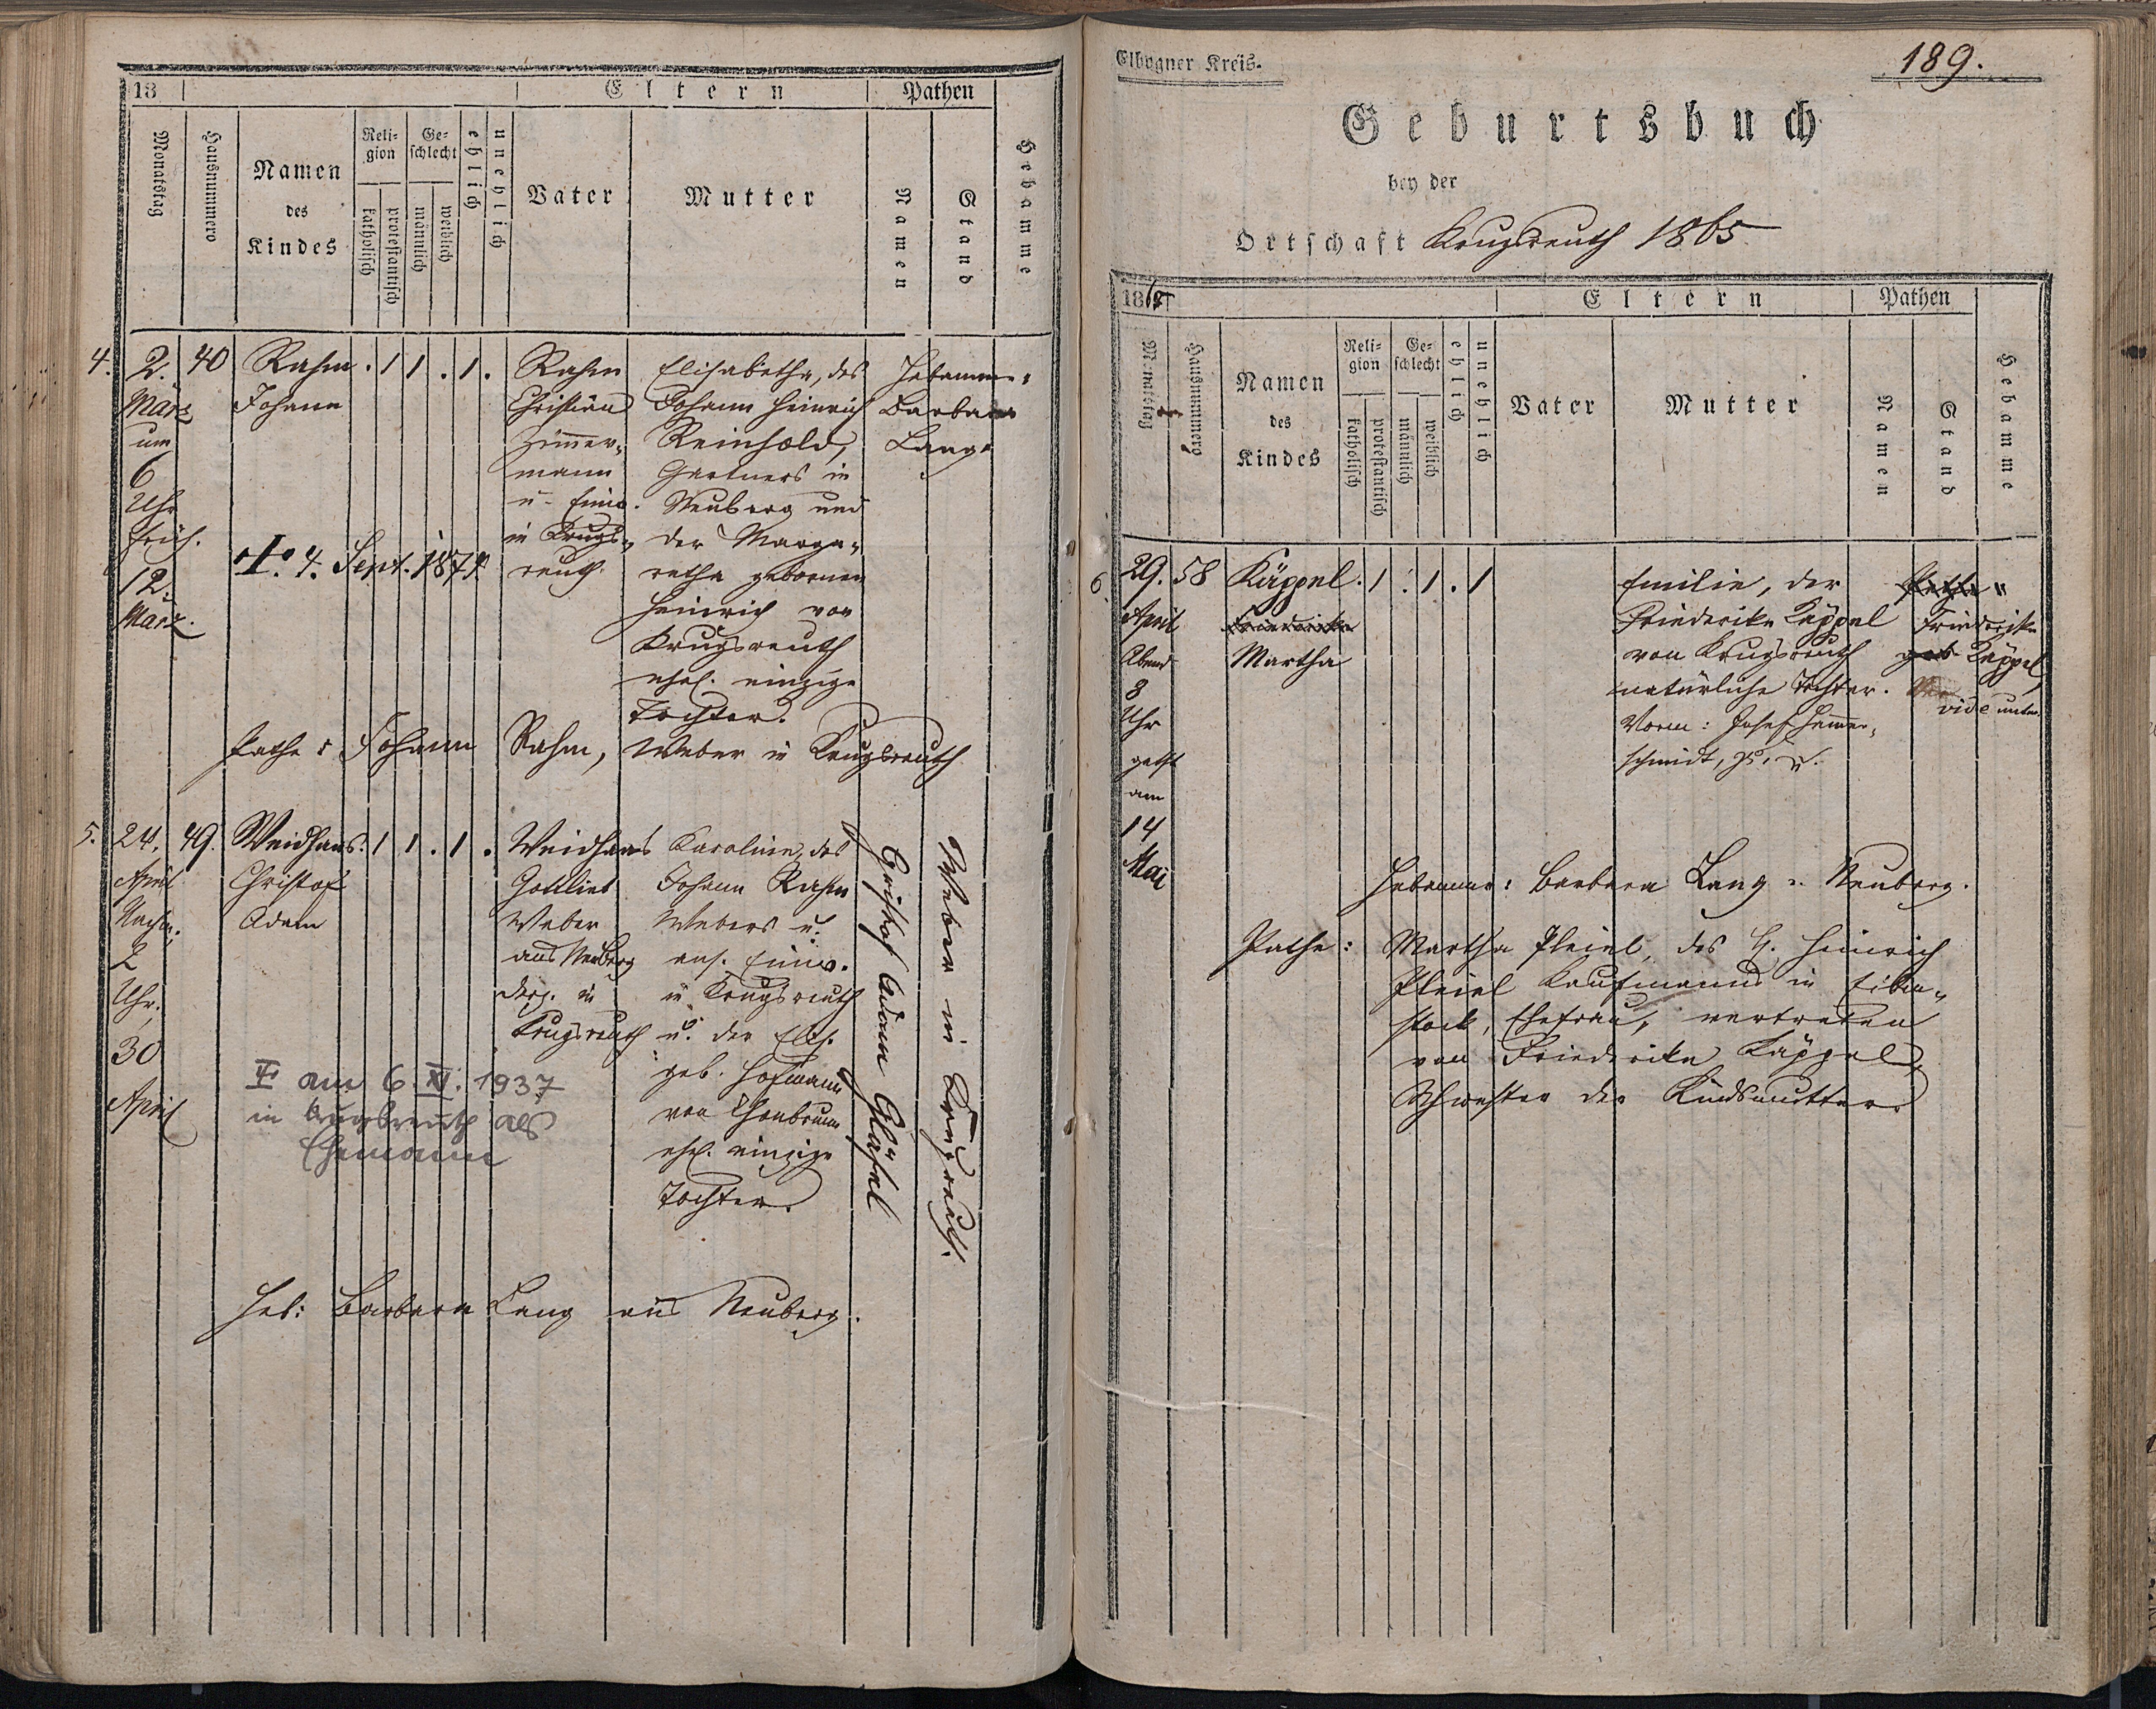 18
Eltern
Pathen
Monatstag
Hausnummero
Namen
des
Kindes
Reli-
gion
katholisch
protestantisch
Ge-
schlecht
männlich
weiblich
ehelich
unehelich
Vater
Mutter
Namen
Stand
Hebamme
4.
2.
März
um
6
Uhr
früh.
12.
März.
40
Rahm
Johann
. 1 1 . 1 .
Rahm
Christian
Zimmer-
mann
u. Einw.
in Krugs-
reuth.
Elisabetha, des
Johann Heinrich
Reinhold,
Gärtners in
Neuberg und
der Marga-
retha gebornen
Heinrich von
Krugsreuth
ehel. einzige
Tochter.
Hebamme:
Barbara
Lang.
4. Sept. 1871
Pathe: Johann Rahm, Weber in Krugsreuth
5.
24.
April
Nachm.
2
Uhr.
30
April
49.
Weidhaas
Christof
Adam
. 1 1 . 1 .
Weidhaas
Gottlieb
Weber
aus Neuberg
derz. in
Krugsreuth
Karoline, des
Johann Rahm
Webers u.
ans. Einw.
in Krugsreuth
u. der Elis.
geb. Hofmann
von Thonbrunn
ehel. einzige
Tochter.
Christof Adam Gläsel
Weber in Krugsreuth.
am 6. XI. 1937
in Krugsreuth als
Ehemann
Heb: Barbara Lang aus Neuberg.
Elbogner Kreis.
189.
Geburtsbuch
bey der
Ortschaft Krugsreuth 1865
1865
Eltern
Pathen
Monatstag
Hausnummero
Namen
des
Kindes
Reli-
gion
katholisch
protestantisch
Ge-
schlecht
männlich
weiblich
ehelich
unehelich
Vater
Mutter
Namen
Stand
Hebamme
6.
29.
April
Abend
8
Uhr
get.
am
14
Mai
58
Käppel
Friederike
Martha
. 1 . 1 . 1
Emilie, der
Friederike Käppel
von Krugsreuth
natürliche Tochter.
Vorm: Josef Hammer-
schmidt,
Pathe
Friederike
geb Käppel,
vide unten
Hebamme: Barbara Lang v. Neuberg.
Pathe: Martha Pleiel, des H. Heinrich
Pleiel Kaufmanns in Eiben-
stock, Ehefrau, vertreten
von Friederike Käppel,
Schwester der Kindsmutter.